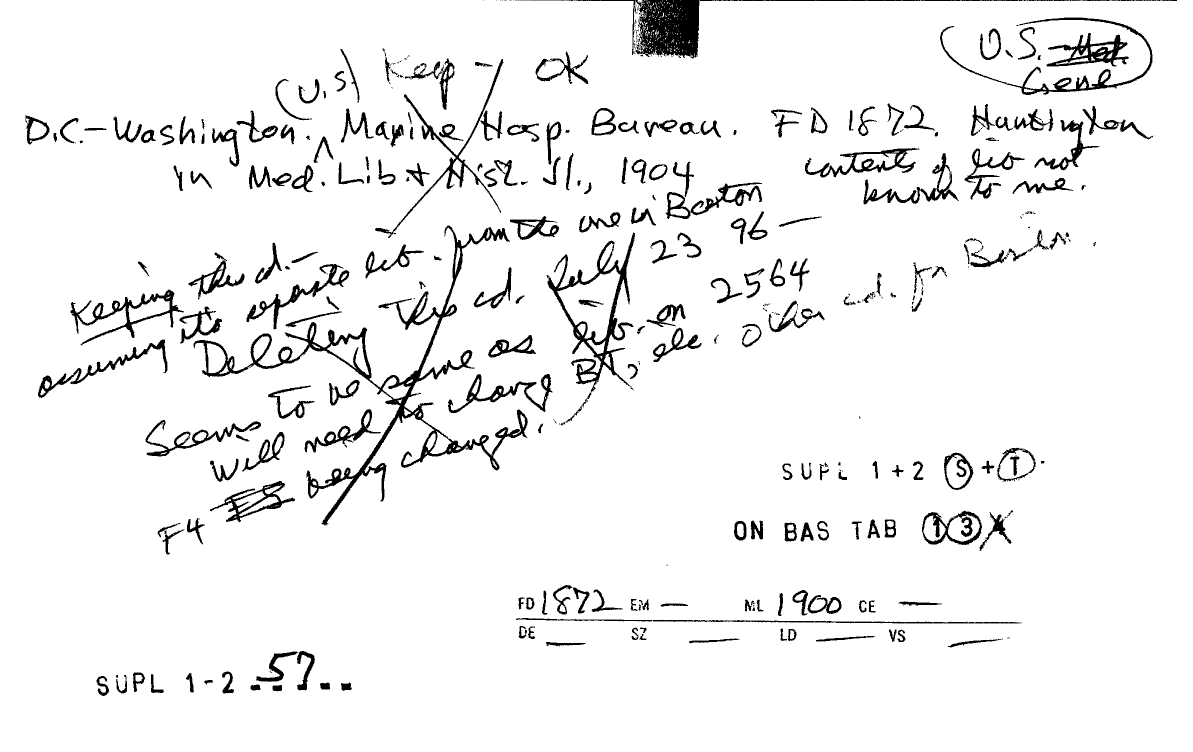 U.S. Med.
Gene
(U.S) Keep - OK
D.C.-Washington. Marine Hosp. Bureau. FD 1872. Huntington
in Med. Lib. & Hist. Jl., 1904 contents of lib not
known to me.
Keeping this cd. -
assuming it's separate lib. from the one in Boston
Deleting this cd. July 23 96 -
Seems to be same as lib. on 2564
Will need to change BT, etc. Other cd. for Boston.
F4 being changed.
SUPL 1+2 S + T.
ON BAS TAB 1 3 4
FD 1872 EM — ML 1900 CE —
DE — SZ — LD — VS —
SUPL 1-2 57